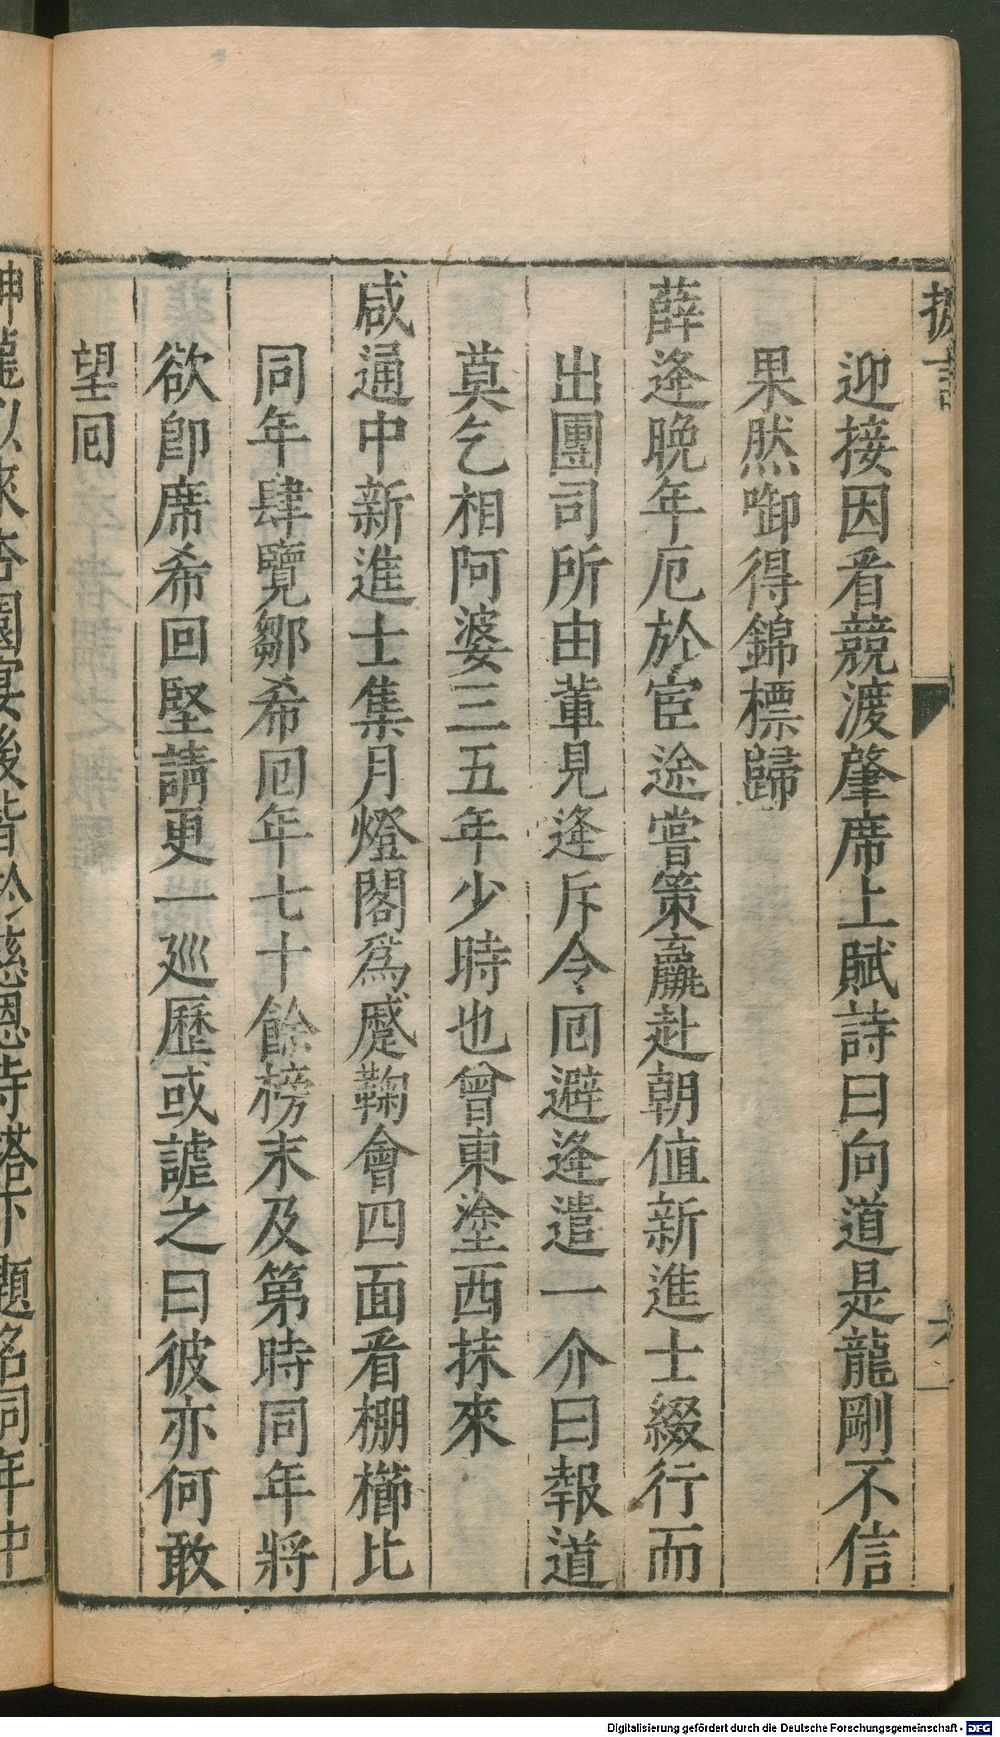 迎接因看競渡肇席上賦詩曰向道是龍剛不信
果然啣得錦標歸
薛逢晚年厄於宦途嘗策羸赴朝值新進士綴行而
出團司所由輩見逢斥令囘避逢遣一介曰報道
莫乞相阿婆三五年少時也曾東塗西抹來
咸通中新進士集月燈閣爲蹙鞠會四面看棚櫛比
同年肆覽鄒希囘年七十餘榜末及第時同年將
欲卽席希回堅請更一巡歷或謔之曰彼亦何敢
望囘
神龍以來杏園宴後皆於慈恩寺塔下題名同年中
Digitalisierung gefördert durch die Deutsche Forschungsgemeinschaft - DFG